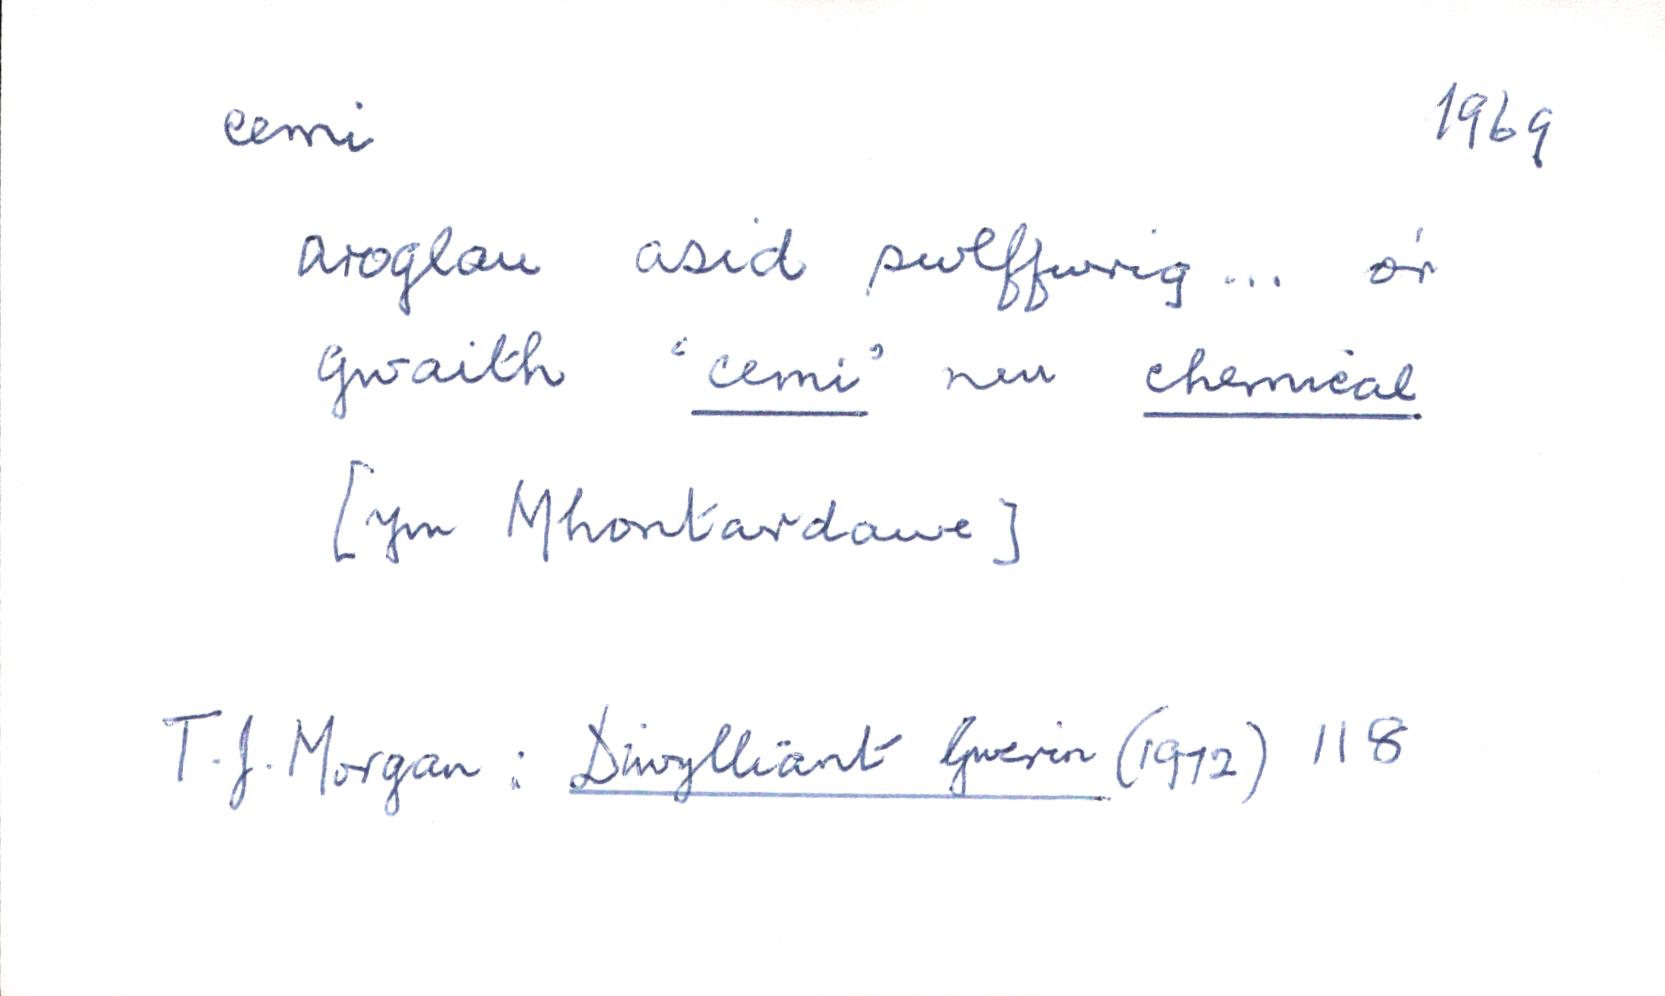 cemi 1969
aroglau asid swlffwrig... o'r
gwaith 'cemi' neu chemical
[ym Mhontardawe]
T.J. Morgan: Diwylliant Gwerin (1972) 118